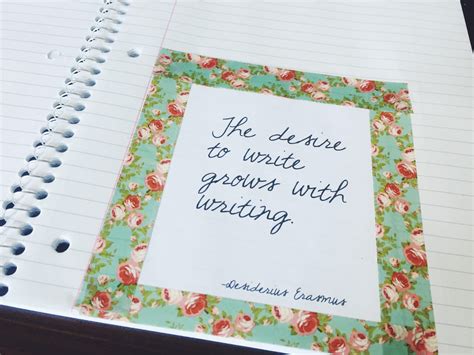 The desire
to write
grows with
writing.
-Desiderius Erasmus